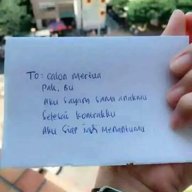 TO: calon mertua
Pak, Bu
Aku Sayang sama anakmu
Selesai kontrakku
Aku Siap jadi Menantumu